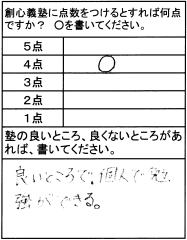 創心義塾に点数をつけるとすれば何点
ですか？ ○を書いてください。
5点
4点 ○
3点
2点
1点
塾の良いところ、良くないところがあ
れば、書いてください。
良いところで、個人で勉
強ができる。